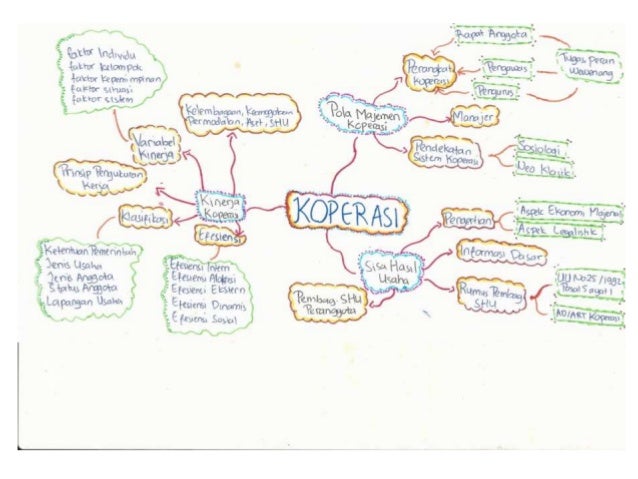 faktor Individu
faktor kelompok
faktor kepemimpinan
faktor situasi
faktor sistem
Variabel
Kinerja
Prinsip Pengukuran
Kerja
Klasifikasi
Ketentuan Pemerintah
Jenis Usaha
Jenis Anggota
Status Anggota
Lapangan Usaha
Kelembagaan, Keanggotaan
Permodalan, Aset, SHU
Kinerja
Koperasi
Efesiensi
Efesiensi Intern
Efesiensi Alokasi
Efesiensi Ekstern
Efesiensi Dinamis
Efesiensi Sosial
KOPERASI
Pola Majemen
Koperasi
Perangkat
Koperasi
Rapat Anggota
Pengawas
Pengurus
Tugas, peran
Wewenang
Manajer
Pendekatan
Sistem Koperasi
Sosiologi
Neo Klasik
Sisa Hasil
Usaha
Pengertian
Aspek Ekonomi
Aspek Legalistik
Informasi Dasar
Rumus Pembagi
SHU
UU No 25 / 1992
Pasal 5 ayat 1
AD/ART Koperasi
Pembagi SHU
Peranggota